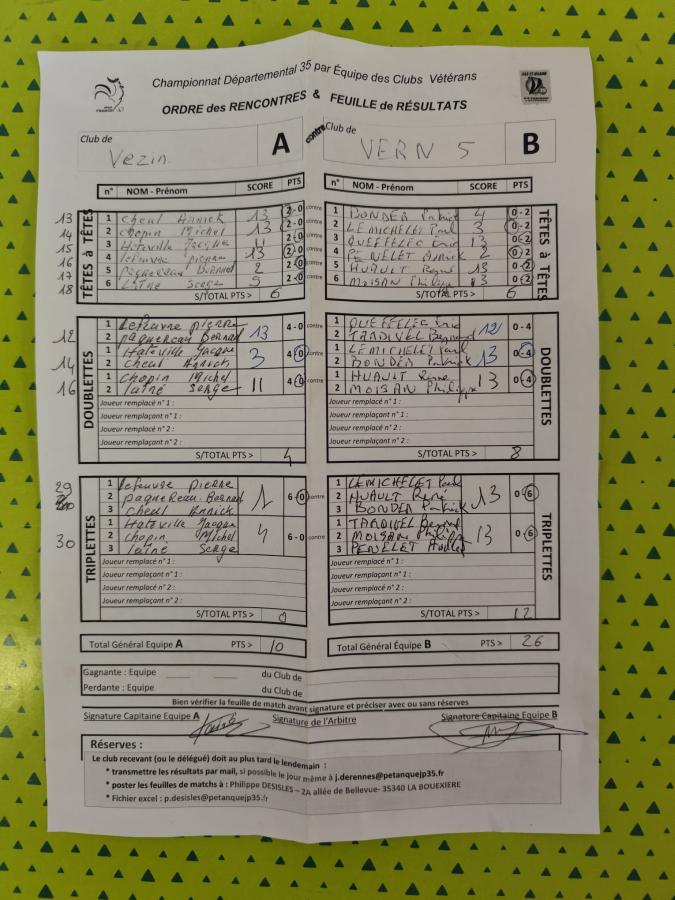 Championnat Départemental 35 par Équipe des Clubs Vétérans
ORDRE des RENCONTRES & FEUILLE de RÉSULTATS
Club de Vezin A contre Club de VERN 5 B
n° NOM - Prénom SCORE PTS n° NOM - Prénom SCORE PTS
TÊTES à TÊTES
13 1 Cheul Annick 13 2-0 contre 1 BONDER Patrick 4 0-2
14 2 Chopin Michel 13 2-0 contre 2 LEMICHELET Paul 3 0-2
15 3 Hateville Jacque 11 2-0 contre 3 QUEFFELEC Eric 13 0-2
16 4 lefeuvre pierre 13 2-0 contre 4 PENELET Annick 2 0-2
17 5 paquereau Bernard 2 2-0 contre 5 HUAULT René 13 0-2
18 6 laîné Serge 5 2-0 contre 6 MOISAN Philippe 13 0-2
S/TOTAL PTS > 6 S/TOTAL PTS > 6
TÊTES à TÊTES
DOUBLETTES
12 1 lefeuvre pierre 13 4-0 contre 1 QUEFFELEC Eric 12 0-4
2 paquereau Bernard 2 TRADIVEL Bernard
14 1 Hateville Jacque 3 4-0 contre 1 LEMICHELET Paul 13 0-4
2 Cheul Annick 2 BONDER Patrick
16 1 Chopin Michel 11 4-0 contre 1 HUAULT René 13 0-4
2 laîné Serge 2 MOISAN Philippe
Joueur remplacé n° 1 : Joueur remplacé n° 1 :
Joueur remplaçant n° 1 : Joueur remplaçant n° 1 :
Joueur remplacé n° 2 : Joueur remplacé n° 2 :
Joueur remplaçant n° 2 : Joueur remplaçant n° 2 :
S/TOTAL PTS > 4 S/TOTAL PTS > 8
DOUBLETTES
TRIPLETTES
29 1 lefeuvre pierre 1 LEMICHELET Paul
2 paquereau Bernard 1 6-0 contre 2 HUAULT René 13 0-6
3 Cheul Annick 3 BONDER Patrick
1 Hateville Jacque 1 TRADIVEL Bernard
30 2 Chopin Michel 4 6-0 contre 2 MOISAN Philippe 13 0-6
3 laîné Serge 3 PENELET
Joueur remplacé n° 1 : Joueur remplacé n° 1 :
Joueur remplaçant n° 1 : Joueur remplaçant n° 1 :
Joueur remplacé n° 2 : Joueur remplacé n° 2 :
Joueur remplaçant n° 2 : Joueur remplaçant n° 2 :
S/TOTAL PTS > 0 S/TOTAL PTS > 12
TRIPLETTES
Total Général Equipe A PTS > 10 Total Général Équipe B PTS > 26
Gagnante : Equipe du Club de
Perdante : Equipe du Club de
Bien vérifier la feuille de match avant signature et préciser avec ou sans réserves
Signature Capitaine Equipe A Signature de l'Arbitre Signature Capitaine Equipe B
Réserves :
Le club recevant (ou le délégué) doit au plus tard le lendemain :
* transmettre les résultats par mail, si possible le jour même à j.derennes@petanquejp35.fr
* poster les feuilles de matchs à : Philippe DESISLES – 2A allée de Bellevue- 35340 LA BOUEXIERE
* Fichier excel : p.desisles@petanquejp35.fr